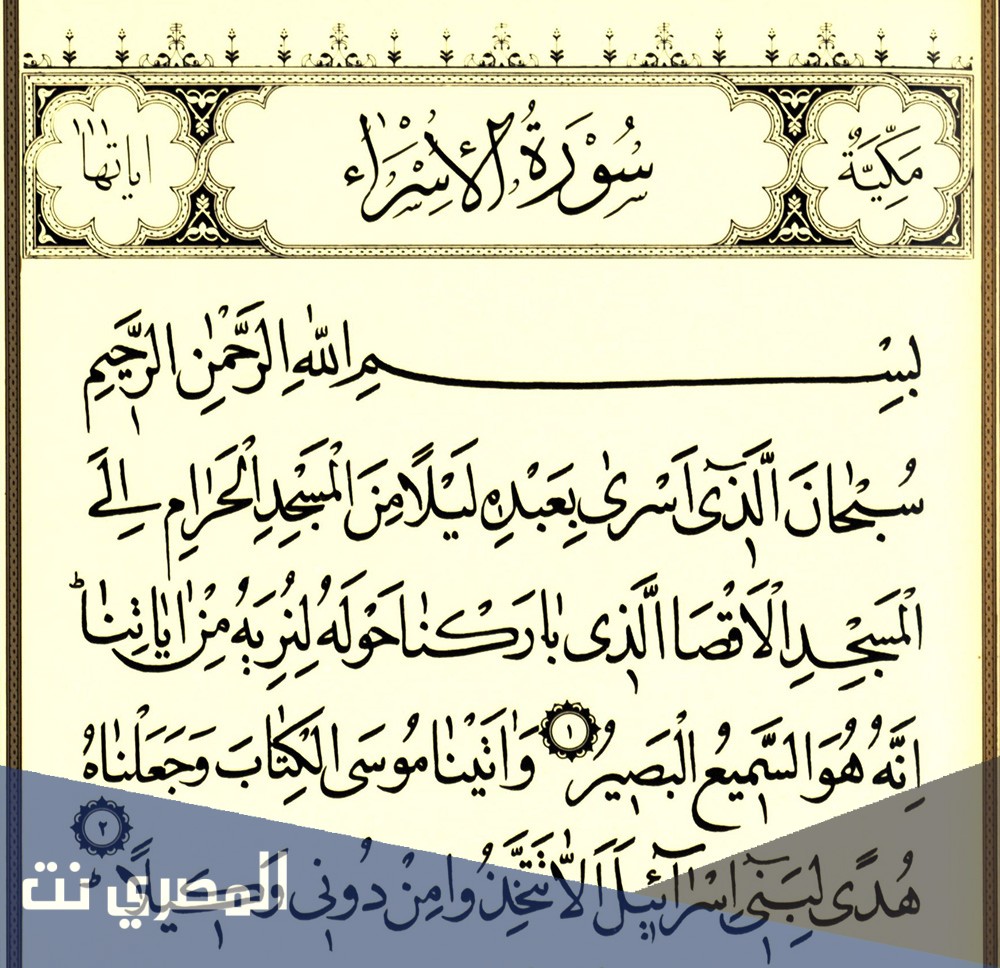 مَكِّيَّةٌ سُوْرَةُ الْاِسْرَٓاءِ اٰيَاتُهَا
بِسْمِ اللّٰهِ الرَّحْمٰنِ الرَّحٖيمِ
سُبْحَانَ الَّذٖٓى اَسْرٰى بِعَبْدِهٖ لَيْلًا مِنَ الْمَسْجِدِ الْحَرَامِ اِلَى
الْمَسْجِدِ الْاَقْصَا الَّذٖى بَارَكْنَا حَوْلَهُ لِنُرِيَهُ مِنْ اٰيَاتِنَاؕ
اِنَّهُ هُوَ السَّمٖيعُ الْبَصٖيرُ ١ وَاٰتَيْنَا مُوسَى الْكِتَابَ وَجَعَلْنَاهُ
هُدًى لِبَنٖٓى اِسْرَٓائٖلَ اَلَّا تَتَّخِذُوا مِنْ دُونٖى وَكٖيلًاؕ ٢
المصري نت